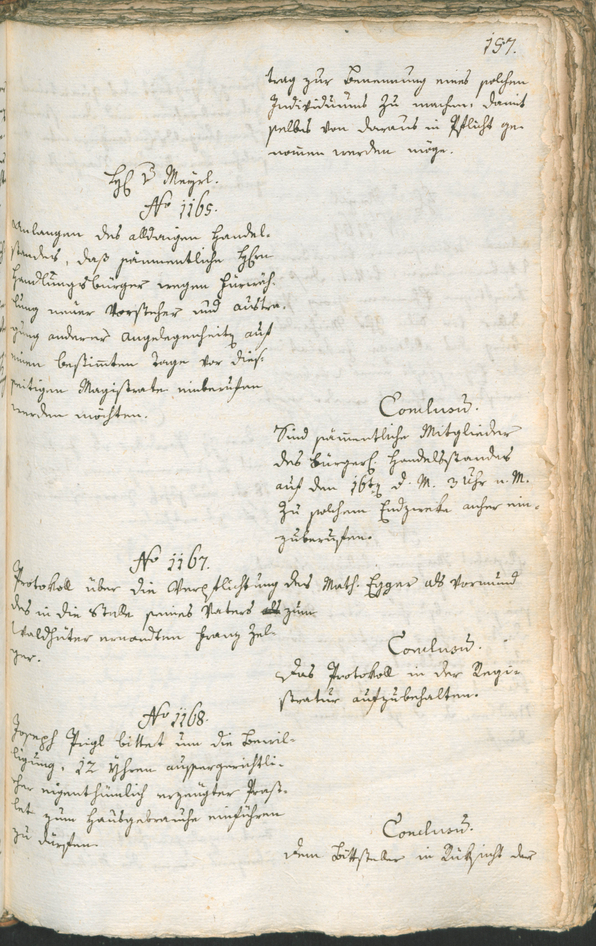 157.
trag zur Benennung eines solchen
Individuums zu machen, damit
selbes von daraus in Pflicht ge-
nommen werden möge.
H. v. Mayrl.
No 1165.
Anlangen des alldasigen Handel-
standes, daß sämmentliche
Handlungsbürger wegen Fürwäh-
lung neuer Vorsteher und austra-
gung anderer Angelegenheit auf
einen bestimmten Tage vor dies-
seitigen Magistrate einberufen
werden möchten.
Conclusū.
Sind sämmentliche Mitglieder
des bürgerl. Handelsstandes
auf den 16ten d. M. 3 Uhr n. M.
zu solchem Endzweke anher ein-
zuberufen.
No 1167.
Protokoll über die Verpflichtung des Math. Egger als Vormund
des in die Stelle seines Vaters als zum
Waldhüter ernandten Franz Zel-
ger.
Conclusū.
Das Protokoll in der Regi-
stratur aufzubehalten.
No 1168.
Joseph Pigl bittet um die Bewil-
ligung, 12 Yhren aussergerichtli-
cher eigenthümlich erzeugter Praß-
let zum Hausgebrauche einführen
zu dürfen.
Conclusū.
Dem Bittsteller in Rüksicht der